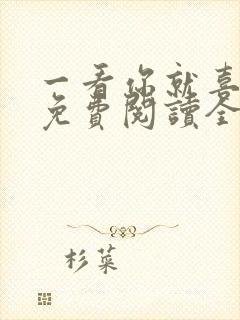 一看你就喜
免費閱讀全
杉菜